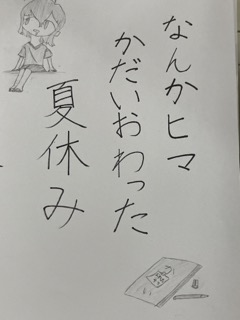 なんかヒマ
かだいおわった
夏休み